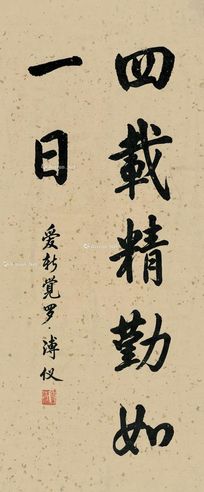 四載精勤如
一日
爱新觉罗·溥仪